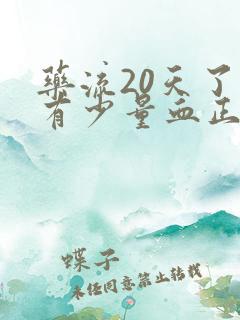 药流20天了
有少量血正
蝶子
未经同意禁止转载